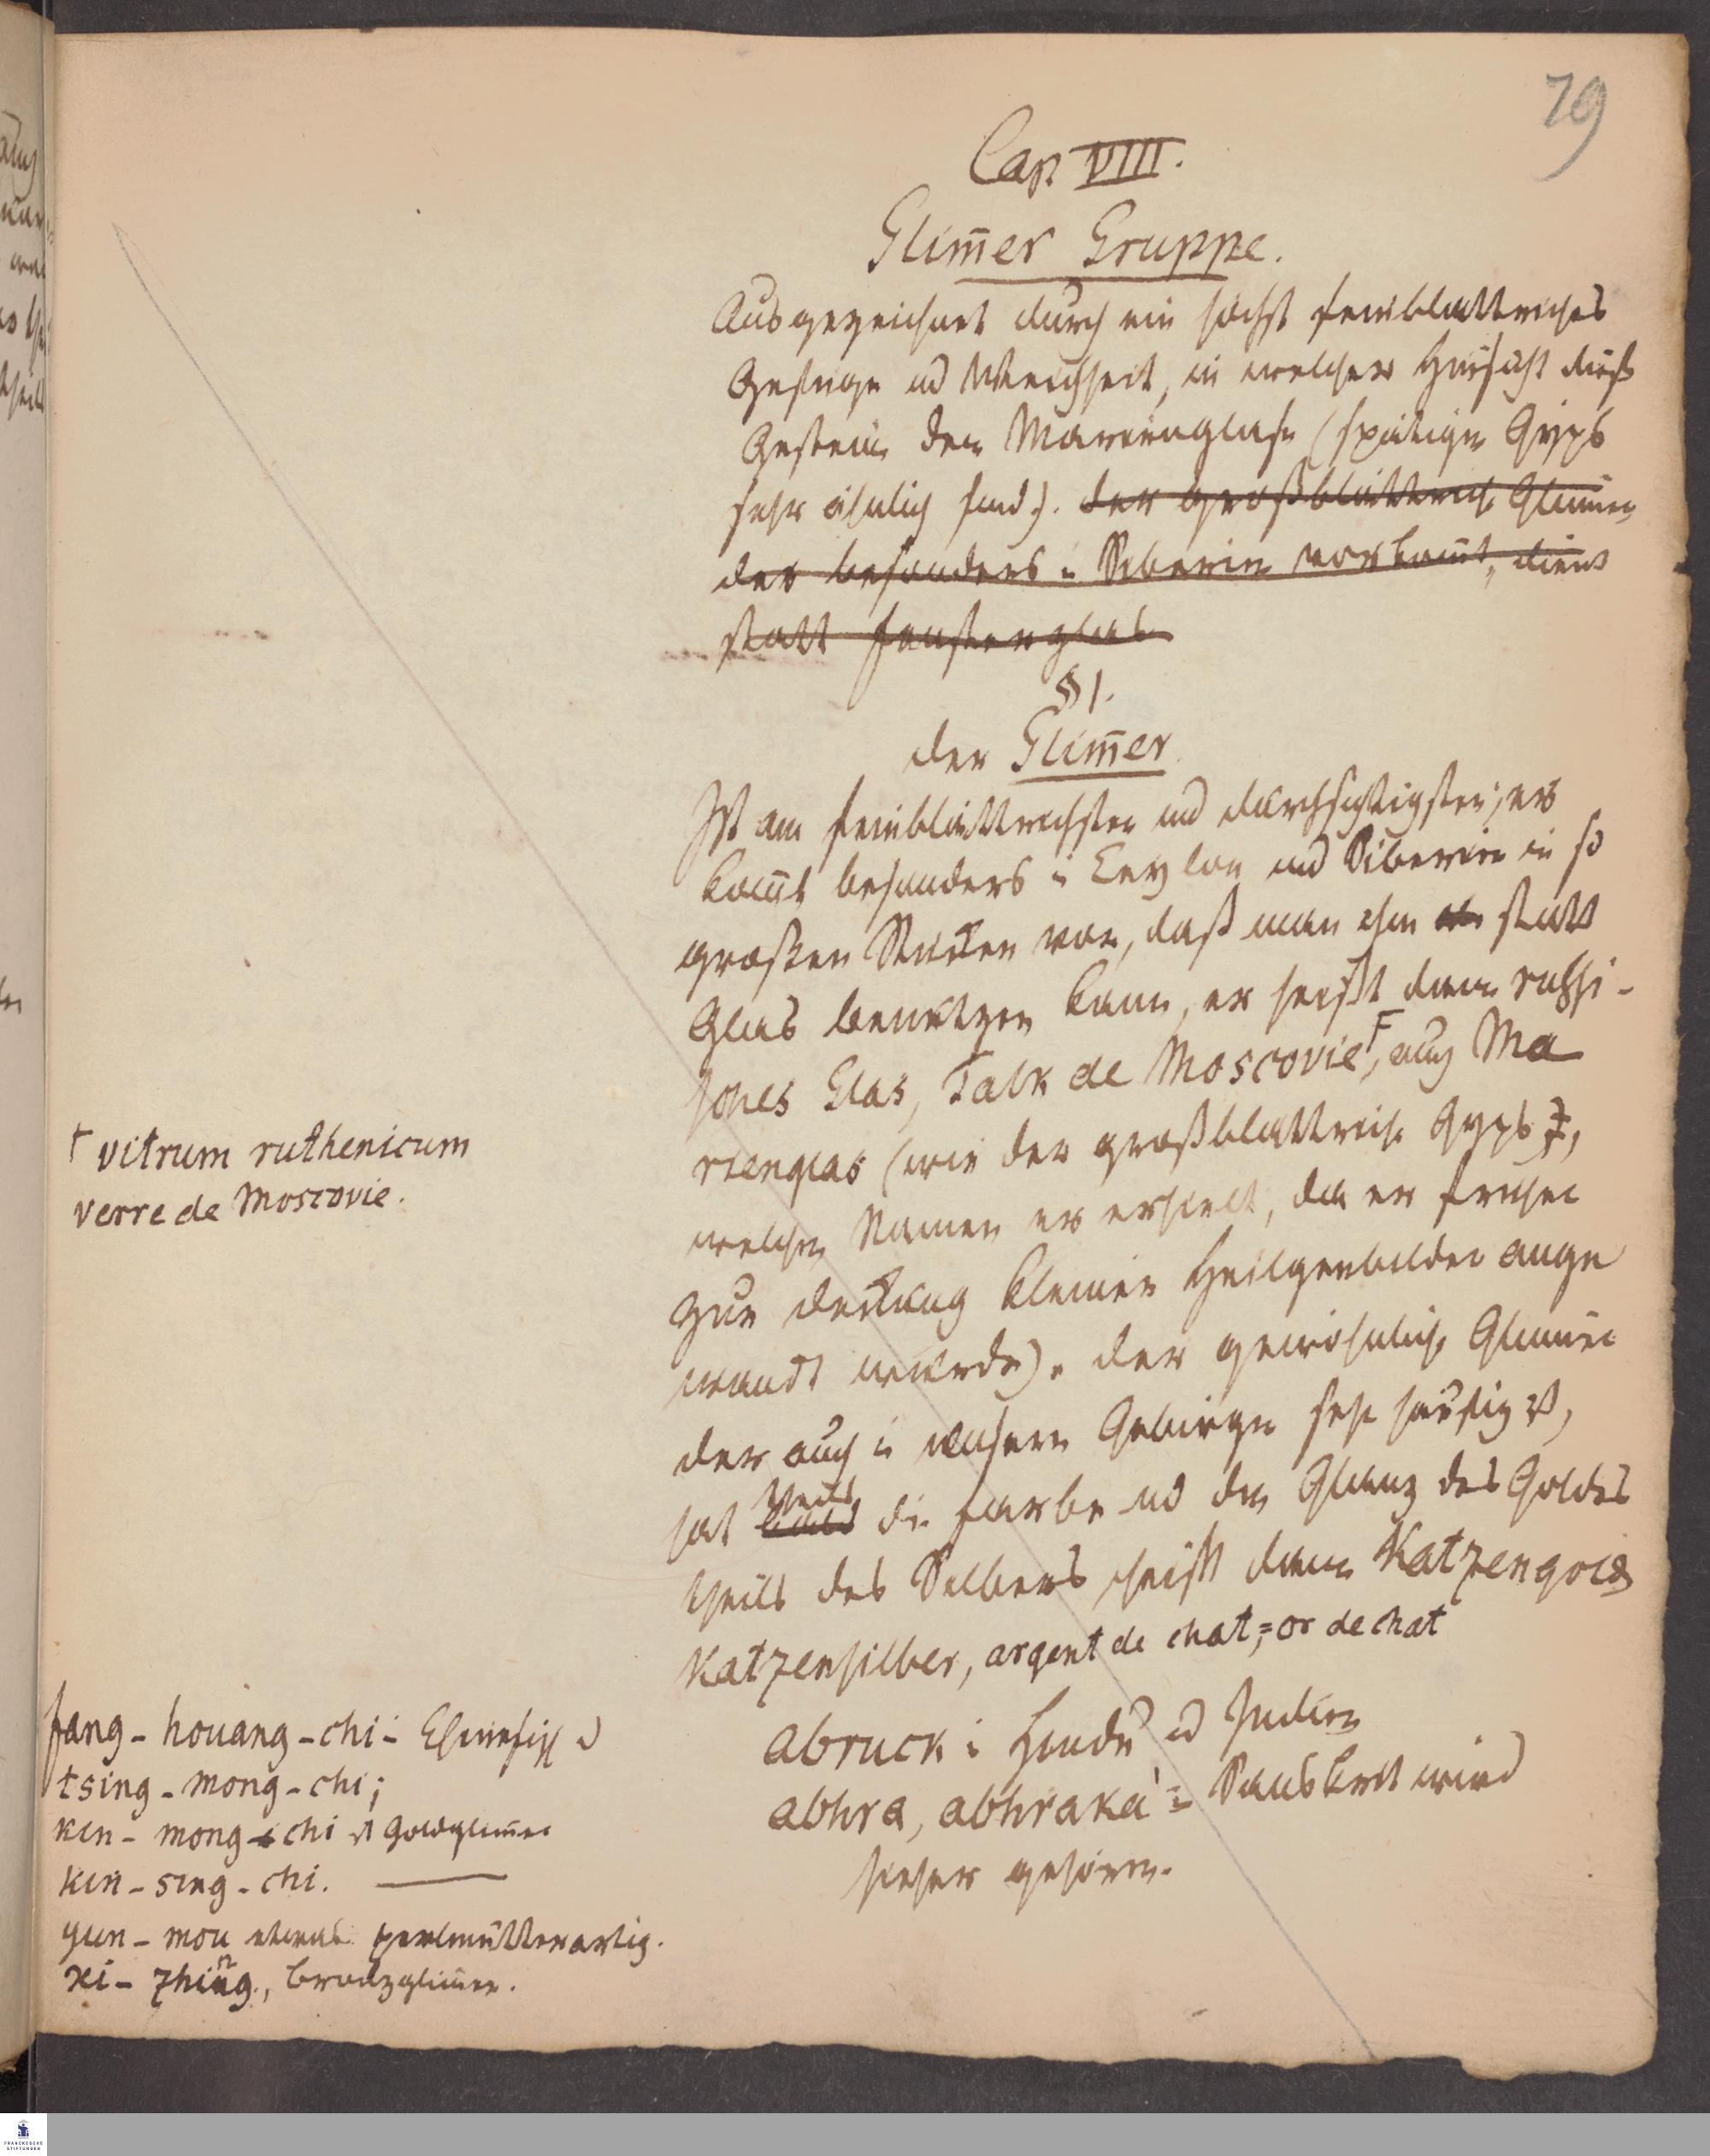 79
Cap VIII.
Glim̄er Gruppe.
Ausgezeichnet durch ein höchst feinblattriches
Gefuge ud Weichheit, in welcher Hinsicht diese
Gesteine dem Marienglase (spätigen Gyps
sehr ähnlich sind). der großblättrich Glim̄er
der besonders i Siberien vorkom̄t, dient
statt fensterglas
§ 1.
der Glim̄er
Ist am feinblättrichsten und durchsichtigsten; er
kom̄t besonders i Ceylon und Siberien in so
großen Stücken vor, daß man ihn statt
Glas benutzen kann, er heißt dann russi-
sches Glas, Talk de Moscovie Ꞙ, auch Ma
rienglas (wie der großblattrich Gyps,
welchen Namen er erhielt, da er früher
zur deckung kleiner Heilgenbilder ange
wandt wurde). der gewöhnlich Glim̄er
der auch i unsern Gebirgen sehr häufig ist,
hat bald theils die farbe ud den Glanz des Goldes
theils des Silbers heißt dann Katzengold
Katzensilber, argent de chat, = or de chat
abruck i Hindu ud Indien
abhra, abhraka i Sanskrit wird
hieher gehören.
Ꞙ vitrum ruthenicum
verre de Moscovie.
fang - houang - chi - Chinesisch
tsing - mong - chi;
kin - mong - chi ist Goldglim̄er
kin - sing - chi. ———
yun - mou etwas perlmutterartig.
xi - zhing, bronzglim̄er.
FRANCKESCHE
STIFTUNGEN